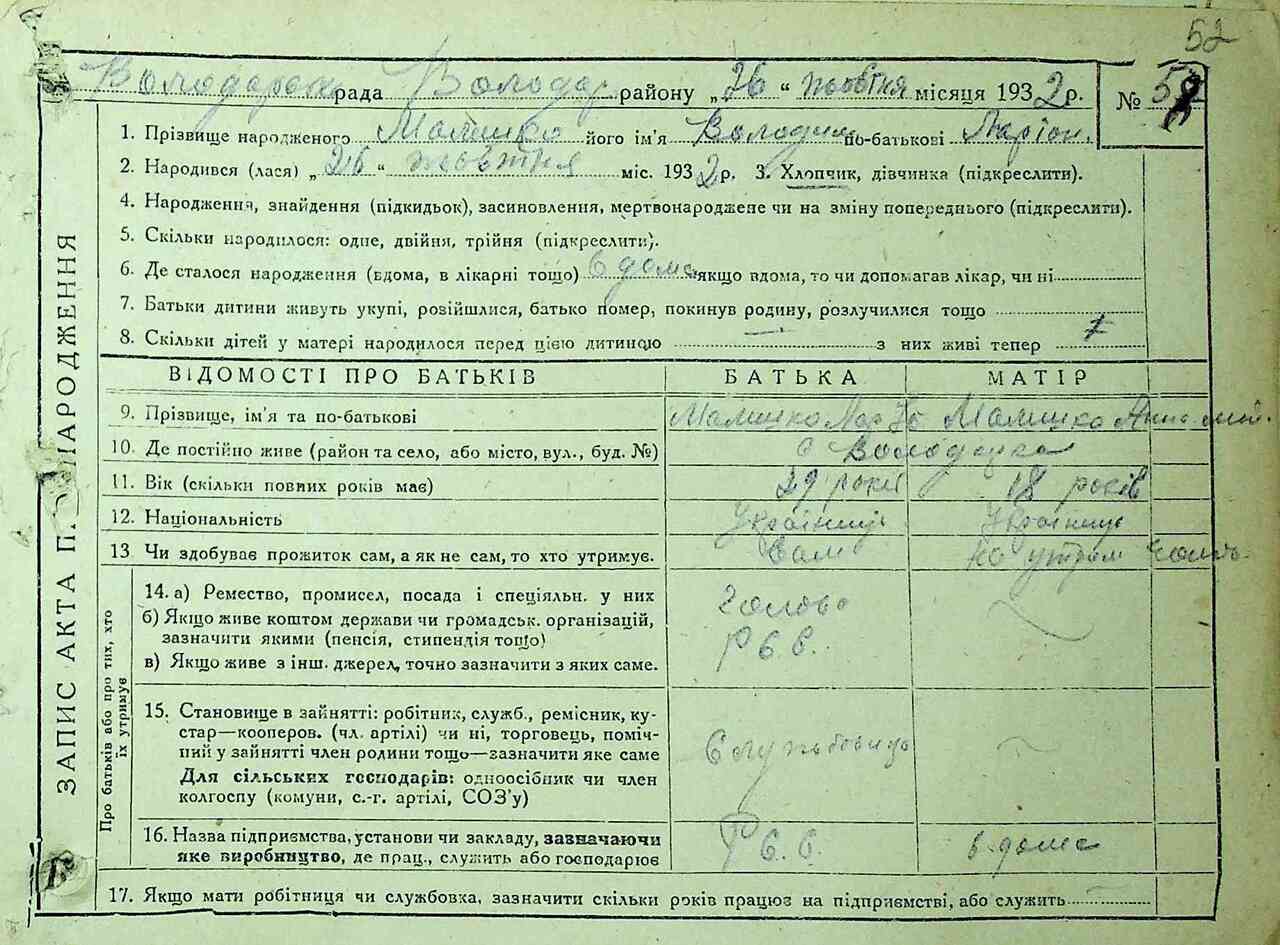 52
Володарська рада Володар району „26“ жовтня місяця 1932 р. № 52
1. Прізвище народженого Малишко його ім'я Володим по-батькові Ларіон.
2. Народився (лася) „26“ жовтня міс. 1932 р. 3. Хлопчик, дівчинка (підкреслити).
4. Народження, знайдення (підкидьок), засиновлення, мертвонароджене чи на зміну попереднього (підкреслити).
5. Скільки народилося: одне, двійня, трійня (підкреслити).
6. Де сталося народження (вдома, в лікарні тощо) в дома якщо вдома, то чи допомагав лікар, чи ні
7. Батьки дитини живуть укупі, розійшлися, батько помер, покинув родину, розлучилися тощо
8. Скільки дітей у матері народилося перед цією дитиною — з них живі тепер
ВІДОМОСТІ ПРО БАТЬКІВ БАТЬКА МАТІР
9. Прізвище, ім'я та по-батькові Малишко Лар Малишко Анна
10. Де постійно живе (район та село, або місто, вул., буд. №) с Володарка
11. Вік (скільки повних років має) 29 років 18 років
12. Національність Українець Українка
13 Чи здобуває прожиток сам, а як не сам, то хто утримує. Сам На утрим
14. а) Ремество, промисел, посада і спеціяльн. у них Голова
б) Якщо живе коштом держави чи громадськ. організацій,
зазначити якими (пенсія, стипендія тощо) Р С С.
в) Якщо живе з інш. джерел, точно зазначити з яких саме.
15. Становище в зайнятті: робітник, служб., ремісник, ку-
стар—кооперов. (чл. артілі) чи ні, торговець, поміч-
ний у зайнятті член родини тощо—зазначити яке саме Службовець
Для сільських господарів: одноосібник чи член
колгоспу (комуни, с.-г. артілі, СОЗ'у)
16. Назва підприємства, установи чи закладу, зазначаючи
яке виробництво, де прац., служить або господарює Р С. С. в дома
17. Якщо мати робітниця чи службовка, зазначити скільки років працює на підприємстві, або служить
ЗАПИС АКТА П НАРОДЖЕННЯ
Про батьків або про тих, хто
їх утримує